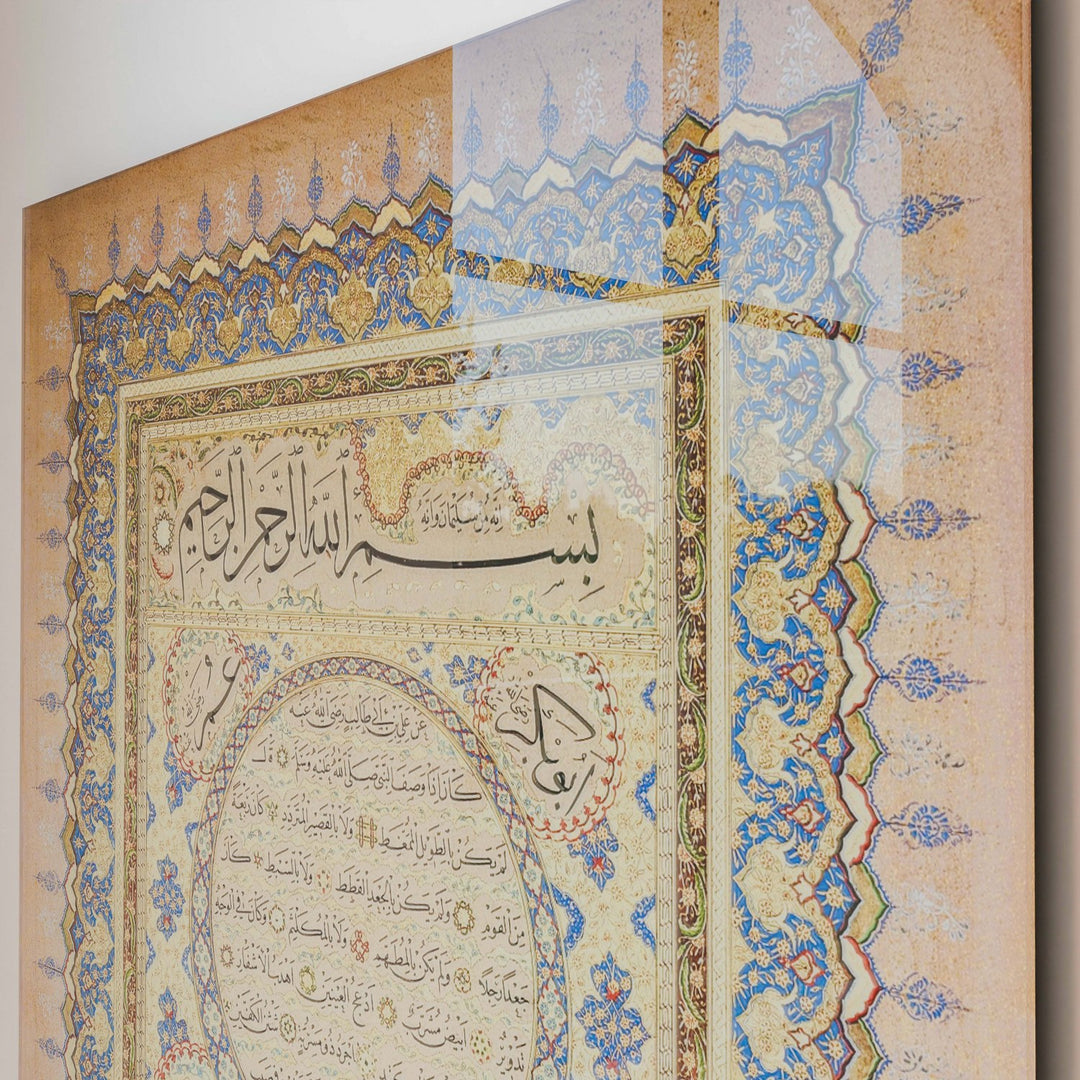 بِسْمِ اللهِ الرَّحْمٰنِ الرَّحِيمِ
اِنَّهُ مِنْ سُلَيْمَانَ وَاِنَّهُ
ابو بكر
عمر
عَنْ عَلِيِّ بْنِ اَبِي طَالِبٍ رَضِيَ اللهُ عَنْهُ
كَانَ اِذَا وَصَفَ النَّبِيَّ صَلَّى اللهُ عَلَيْهِ وَسَلَّمَ قَالَ
لَمْ يَكُنْ بِالطَّوِيلِ الْمُمَّغِطِ وَلَا بِالْقَصِيرِ الْمُتَرَدِّدِ كَانَ رَبْعَةً
مِنَ الْقَوْمِ وَلَمْ يَكُنْ بِالْجَعْدِ الْقَطَطِ وَلَا بِالسَّبِطِ كَانَ
جَعْدًا رَجِلًا وَلَمْ يَكُنْ بِالْمُطَهَّمِ وَلَا بِالْمُكَلْثَمِ وَكَانَ فِي الْوَجْهِ
تَدْوِيرٌ اَبْيَضُ مُشْرَبٌ اَدْعَجُ الْعَيْنَيْنِ اَهْدَبُ الْاَشْفَارِ
اَجْرَدُ ذُو مَسْرُبَةٍ شَثْنُ الْكَفَّيْنِ